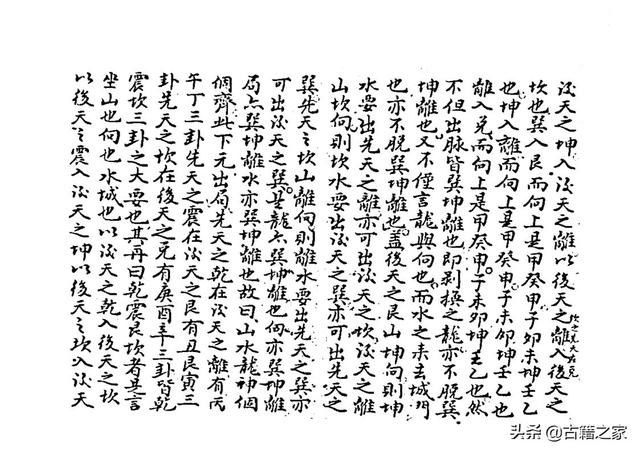 後天之坤入後天之離以後天之離入後天之
坎也巽入艮而向上是甲癸申子卯未坤壬乙
也坤入離而向上是甲癸申子未卯坤壬乙也
離入兑而向上是甲癸申子未卯坤壬乙也然
不但出脉皆巽坤離也即剥換之龍亦不脱巽
坤離也又不僅言龍與向也而水之来去城門
也亦不脱巽坤離也盖後天之艮山坤向則坤
水要出先天之離亦可出後天之坎後天之離
山坎向則坎水要出後天之巽亦可出先天之
巽先天之坎山離向則離水要出先天之巽亦
可出後天之巽是龍亦巽坤離也向亦巽坤離
局亦巽坤離水亦巽坤離也故曰山水龍神個
個齊此下元出局先天之乾在後天之離有丙
午丁三卦先天之震在後天之艮有丑艮寅三
卦先天之坎在後天之兑有庚酉辛三卦皆乾
震坎三卦之大要也其再曰乾震艮坎者是言
坐山也向也水城也以後天之乾入後天之坎
以後天之震入後天之坤以後天之坎入後天
头条 @古籍之家